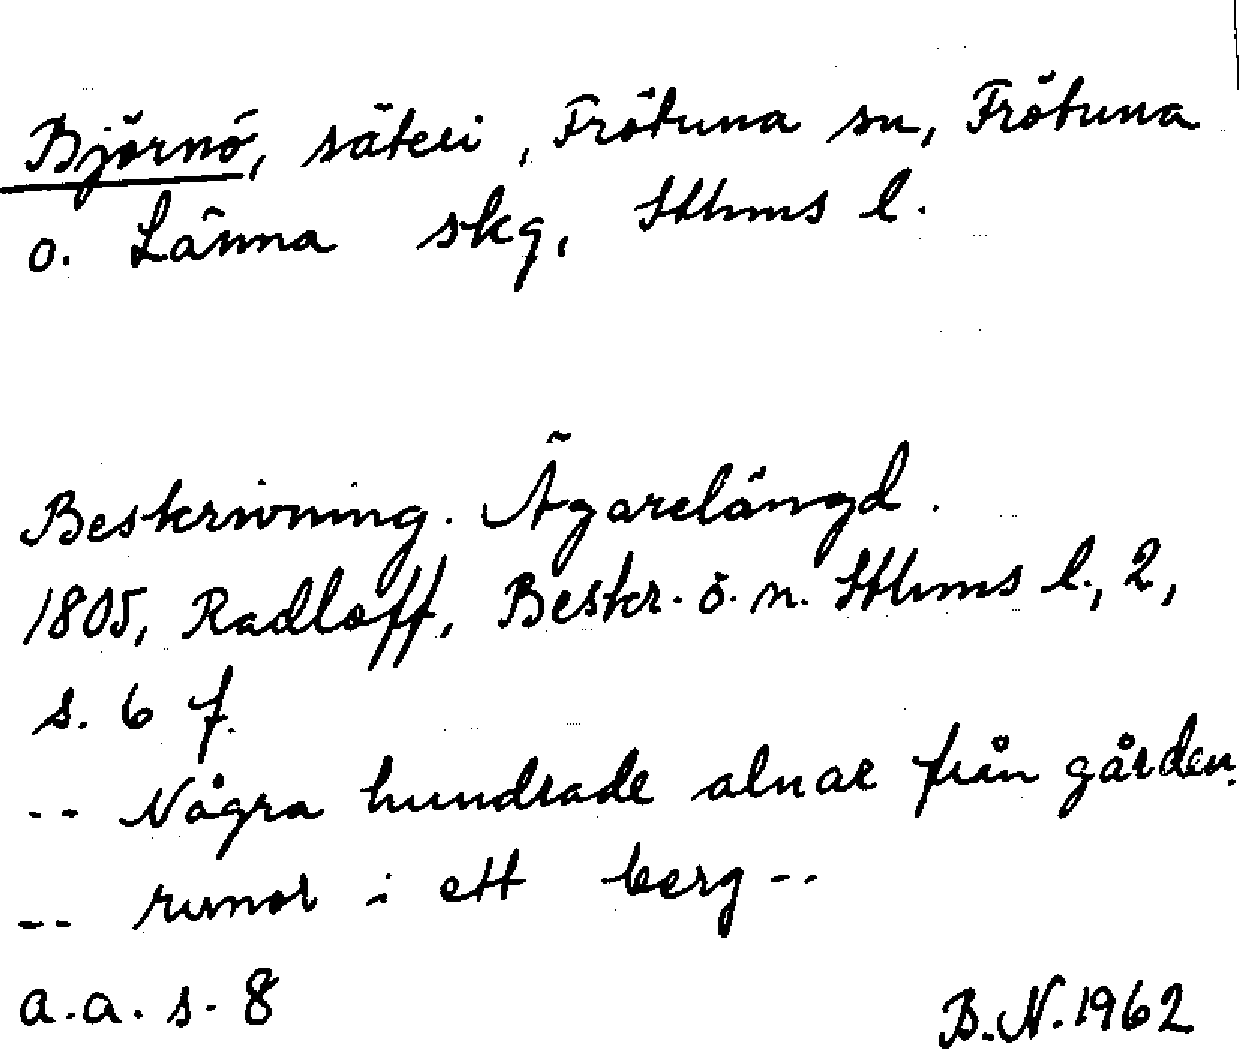 Björnö, säteri, Frötuna sn, Frötuna
o. Länna skg, Sthms l.
Beskrivning. Ägarelängd.
1805, Radloff, Beskr. ö. n. Sthms l., 2,
s. 6 f.
-- Några hundrade alnar från gården.
-- runor i ett berg --
a.a. s. 8
B.N. 1962